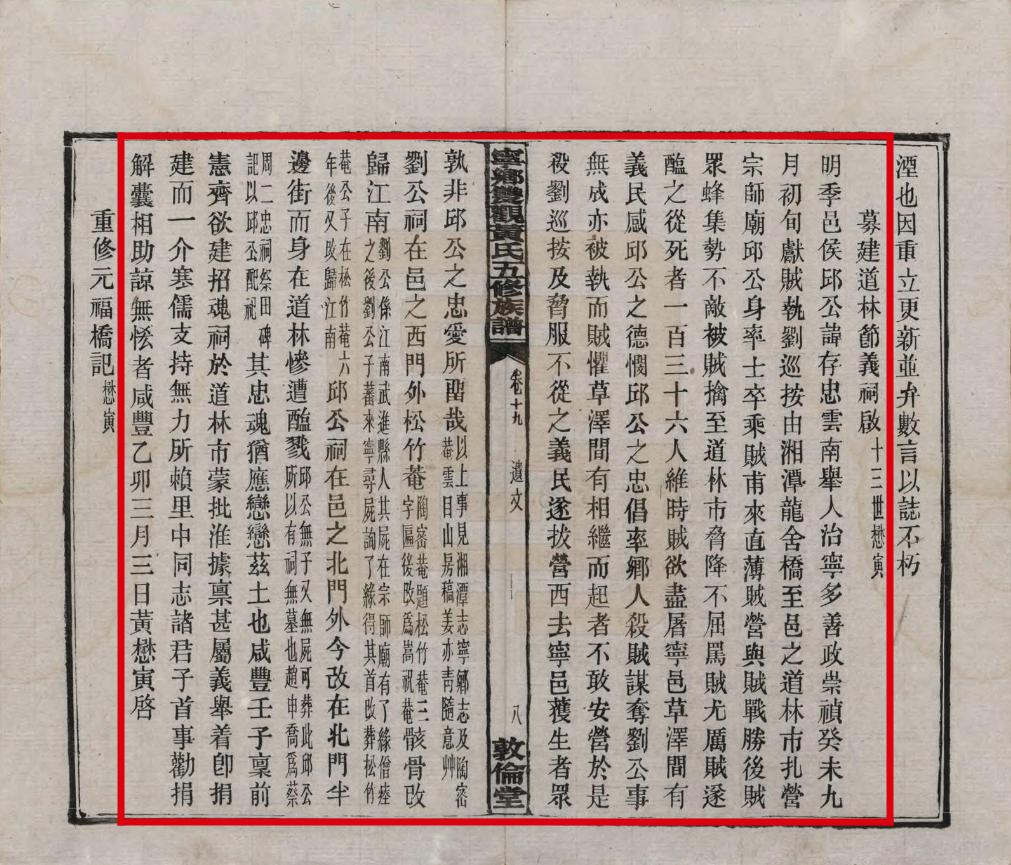 湮也因重立更新並弁數言以誌不朽
募建道林節義祠啟十三世懋寅
明季邑侯邱公諱存忠雲南舉人治寧多善政崇禎癸未九
月初旬獻賊執劉巡按由湘潭龍舍橋至邑之道林市扎營
宗師廟邱公身率士卒乘賊甫來直薄賊營與賊戰勝後賊
眾蜂集勢不敵被賊擒至道林市脅降不屈罵賊尤厲賊遂
醢之從死者一百三十六人維時賊欲盡屠寧邑草澤間有
義民感邱公之德憫邱公之忠倡率鄉人殺賊謀奪劉公事
無成亦被執而賊懼草澤間有相繼而起者不敢安營於是
殺劉巡按及脅服不從之義民遂拔營西去寧邑獲生者眾
寧鄉雙觀黃氏五修族譜
卷十九
遺文
八
敦倫堂
孰非邱公之忠愛所留哉以上事見湘潭志寧鄉志及陶密菴雲目山房稿姜亦青隨意艸
劉公祠在邑之西門外松竹菴陶密菴題松竹菴三字匾後改為嵩祝菴骸骨改
歸江南劉公係江南武進縣人其屍在宗師廟有了緣僧瘞之後劉公子蕃來寧尋屍詢了緣得其首改葬松竹
菴公子在松竹菴六年後又改歸江南邱公祠在邑之北門外今改在北門半
邊街而身在道林慘遭醢戮邱公無子又無屍可葬此邱公所以有祠無墓也趙申喬為蔡
周二忠祠祭田碑記以邱公配祀其忠魂猶應戀戀茲土也咸豐壬子稟前
憲齊欲建招魂祠於道林市蒙批准據稟甚屬義舉着即捐
建而一介寒儒支持無力所賴里中同志諸君子首事勸捐
解囊相助諒無恡者咸豐乙卯三月三日黃懋寅啓
重修元福橋記懋寅